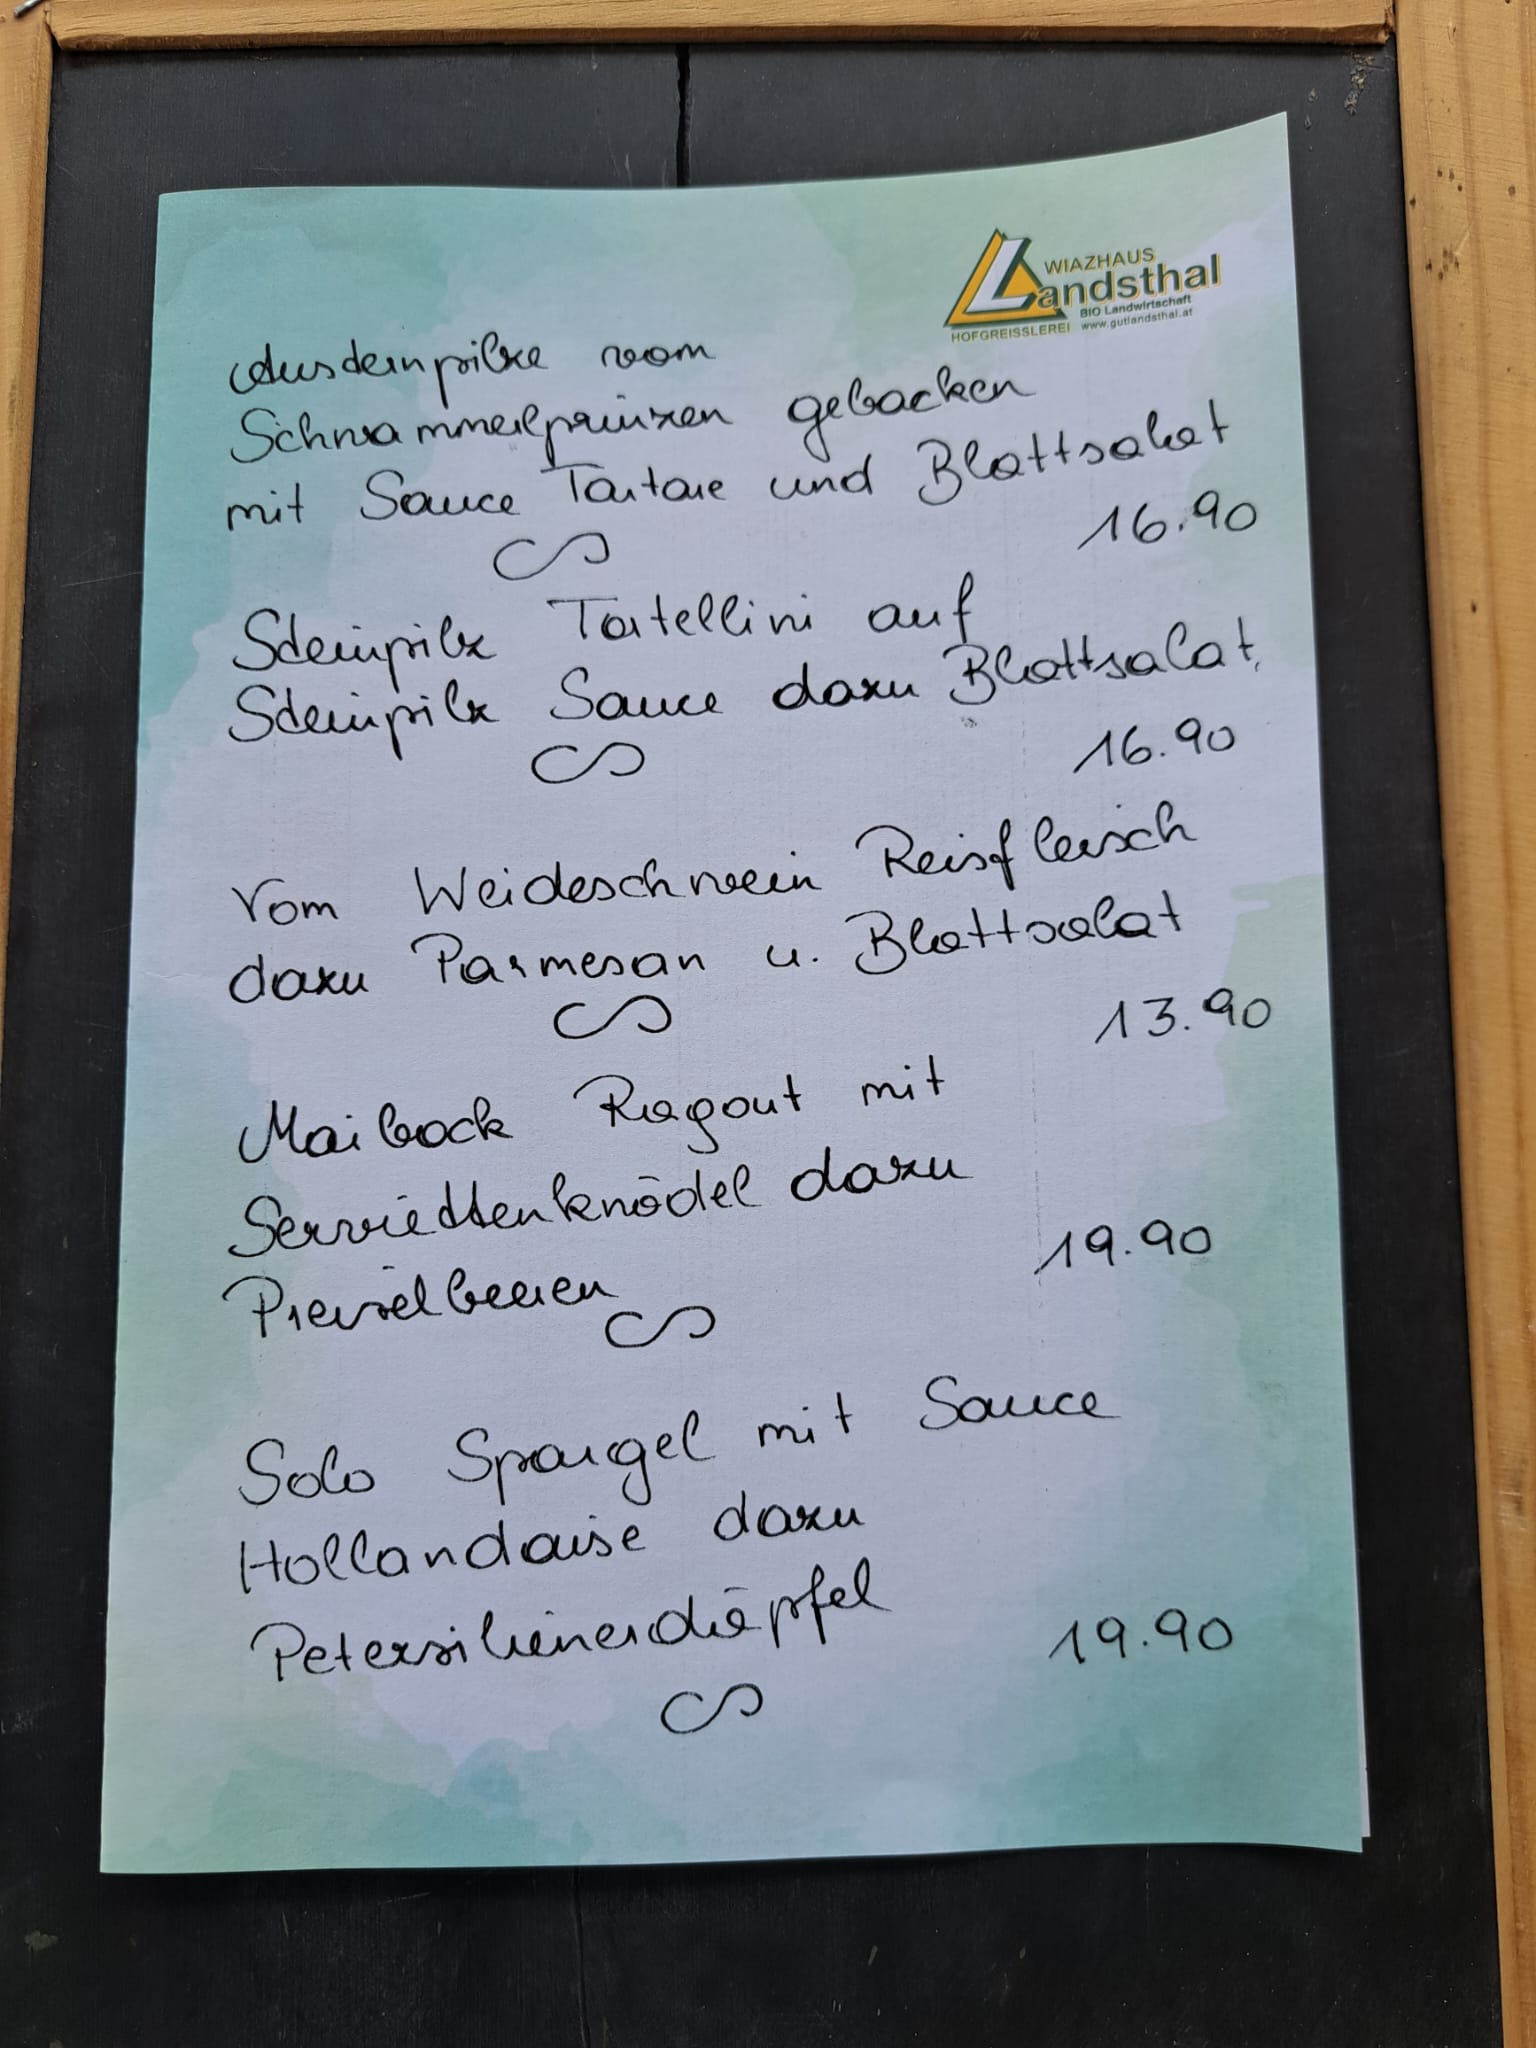 WIAZHAUS
Landsthal
BIO Landwirtschaft
HOFGREISSLEREI www.gutlandsthal.at
Austernpilze vom
Schwammerlprinzen gebacken
mit Sauce Tartare und Blattsalat
16.90
Steinpilz Tortellini auf
Steinpilz Sauce dazu Blattsalat
16.90
Vom Weideschwein Reisfleisch
dazu Parmesan u. Blattsalat
13.90
Maibock Ragout mit
Serviettenknödel dazu
Preiselbeeren
19.90
Solo Spargel mit Sauce
Hollandaise dazu
Petersilienerdäpfel
19.90